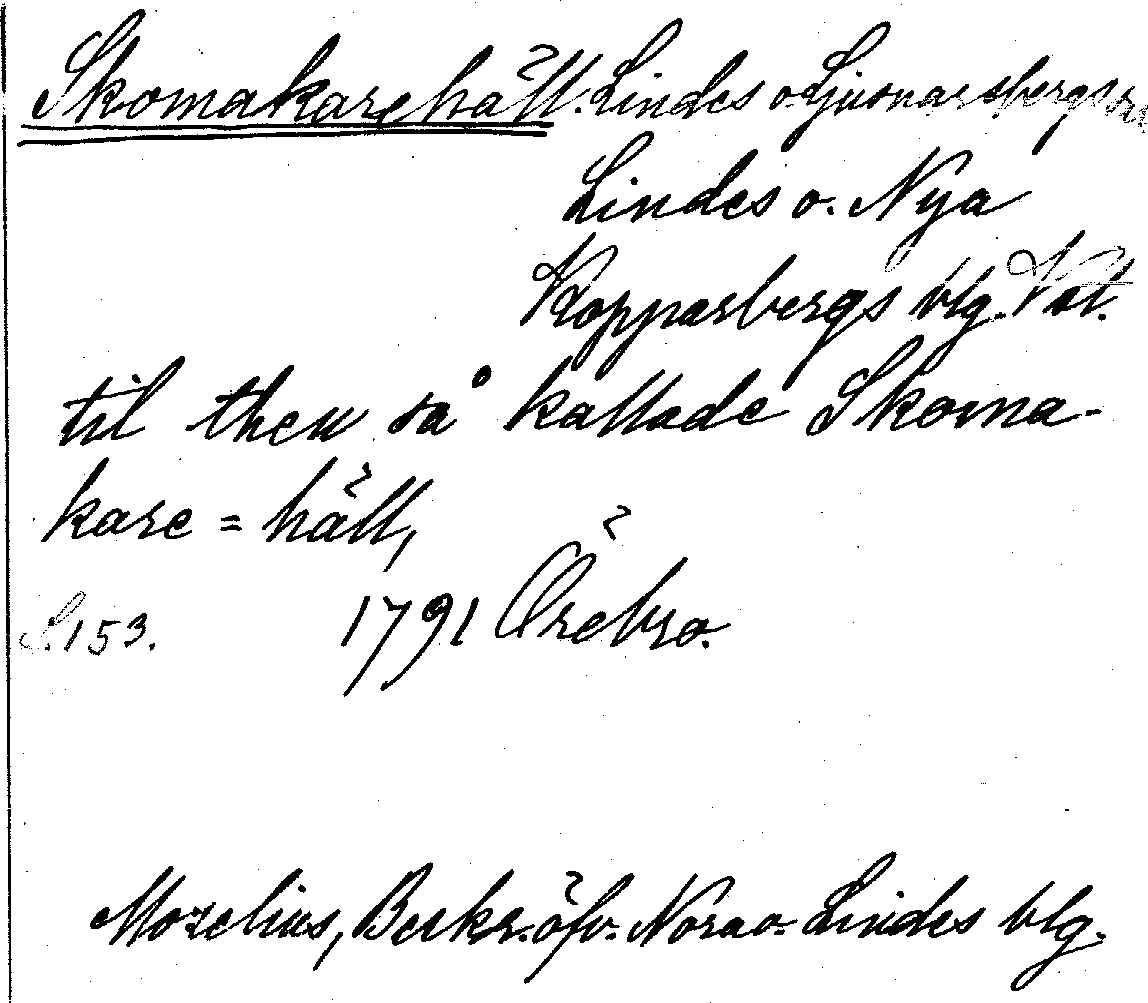 Skomakarehäll. Lindes o. Ljusnarsbergs sn
Lindes o. Nya
Kopparbergs blg. Vstl.
til then så kallade Skoma-
kare=häll,
S. 153. 1791 Örebro.
Morelius, Beskr. öfv. Nora o. Lindes blg.